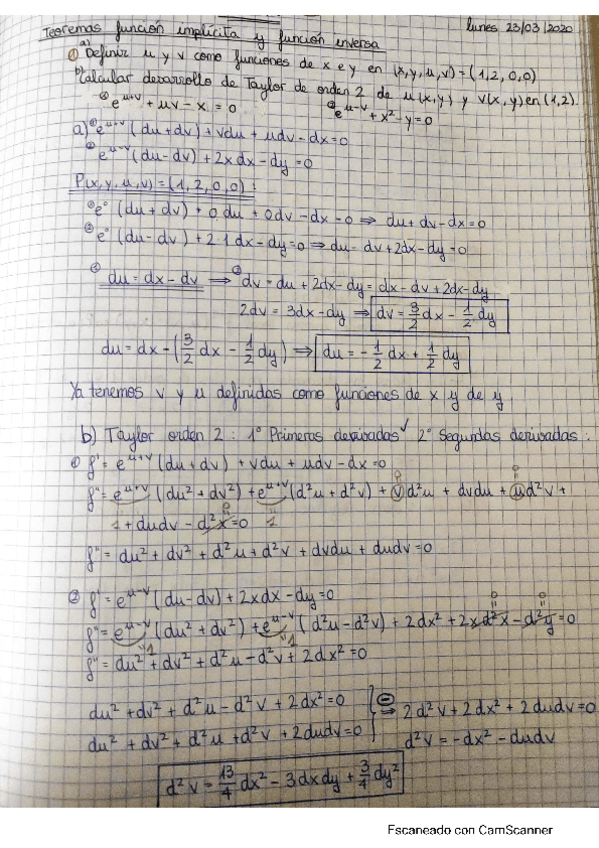 Teoremas función implícita y función inversa lunes 23/03/2020
① a) Definir u y v como funciones de x e y en (x,y,u,v)=(1,2,0,0)
b) Calcular desarrollo de Taylor de orden 2 de u(x,y) y v(x,y) en (1,2).
① e^{u+v} + uv - x = 0 ② e^{u-v} + x² - y = 0
a) ① e^{u+v} (du + dv) + vdu + udv - dx = 0
② e^{u-v} (du - dv) + 2xdx - dy = 0
P(x,y,u,v) = (1,2,0,0) :
① e⁰ (du + dv) + 0.du + 0dv - dx = 0 ⇒ du + dv - dx = 0
② e⁰ (du - dv) + 2·1dx - dy = 0 ⇒ du - dv + 2dx - dy = 0
① du = dx - dv ⟹ ② dv = du + 2dx - dy = dx - dv + 2dx - dy
2dv = 3dx - dy ⇒ dv = 3/2 dx - 1/2 dy
du = dx - (3/2 dx - 1/2 dy) ⟹ du = -1/2 dx + 1/2 dy
Ya tenemos v y u definidas como funciones de x y de y.
b) Taylor orden 2 : 1º Primeras derivadas ✓ 2º Segundas derivadas :
① f' = e^{u+v} (du + dv) + vdu + udv - dx = 0
f'' = e^{u+v} (du² + dv²) + e^{u+v} (d²u + d²v) + v d²u + dvdu + u d²v +
1 + dudv - d²x = 0 1
f'' = du² + dv² + d²u + d²v + dvdu + dudv = 0
② f' = e^{u-v} (du - dv) + 2xdx - dy = 0
f'' = e^{u-v} (du² + dv²) + e^{u-v} (d²u - d²v) + 2dx² + 2xd²x - d²y = 0
f'' = du² + dv² + d²u - d²v + 2dx² = 0
du² + dv² + d²u - d²v + 2dx² = 0
du² + dv² + d²u + d²v + 2dudv = 0 } ⊖ ⇒ 2d²v + 2dx² + 2dudv = 0
d²v = -dx² - dudv
d²v = 13/4 dx² - 3dxdy + 3/4 dy²
Escaneado con CamScanner